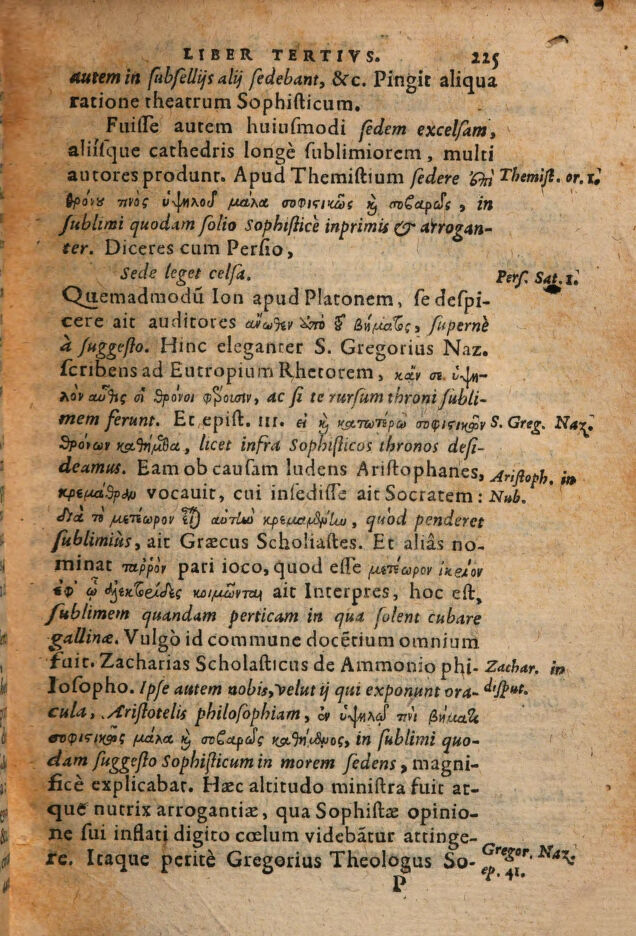 LIBER TERTIVS. 225
autem in subsellijs alij sedebant, &c. Pingit aliqua
ratione theatrum Sophisticum.
Fuisse autem huiusmodi sedem excelsam,
aliisque cathedris longè sublimiorem, multi
autores produnt. Apud Themistium sedere ἐπὶ
Themist. or. 1.
θρόνου τινὸς ὑψηλοῦ μάλα σοφιστικῶς καὶ σοβαρῶς, in
sublimi quodam solio Sophisticè inprimis & arrogan-
ter. Diceres cum Persio,
Sede leget celsa.
Pers. Sat. 1.
Quemadmodũ Ion apud Platonem, se despi-
cere ait auditores ἄνωθεν ἀπὸ τοῦ βήματος, supernè
à suggesto. Hinc eleganter S. Gregorius Naz.
scribens ad Eutropium Rhetorem, κἄν σε ὑψη-
λὸν αὖθις οἱ θρόνοι φέρουσιν, ac si te rursum throni subli-
mem ferunt. Et epist. III. εἰ καὶ κατωτέρω σοφιστικῶν
S. Greg. Naz.
θρόνων καθήμεθα, licet infra Sophisticos thronos desi-
deamus. Eam ob causam ludens Aristophanes,
Aristoph. in
κρεμάθραν vocauit, cui insedisse ait Socratem:
Nub.
διὰ τὸ μετέωρον εἶναι αὐτὴν κρεμαμένην, quòd penderet
sublimiùs, ait Græcus Scholiastes. Et aliâs no-
minat ταρρὸν pari ioco, quod esse μετέωρον ἰκρίον
ἐφ' ᾧ ἀλεκτορίδες κοιμῶνται ait Interpres, hoc est,
sublimem quandam perticam in qua solent cubare
gallinæ. Vulgò id commune docẽtium omnium
fuit. Zacharias Scholasticus de Ammonio phi-
Zachar. in
losopho. Ipse autem nobis, velut ij qui exponunt ora-
disput.
cula, Aristotelis philosophiam, ἐν ὑψηλῷ τινι βήματι
σοφιστικῶς μάλα καὶ σοβαρῶς καθήμενος, in sublimi quo-
dam suggesto Sophisticum in morem sedens, magni-
ficè explicabat. Hæc altitudo ministra fuit at-
que nutrix arrogantiæ, qua Sophistæ opinio-
ne sui inflati digito cœlum videbãtur attinge-
re. Itaque peritè Gregorius Theologus So-
Gregor. Naz.
ep. 41.
P